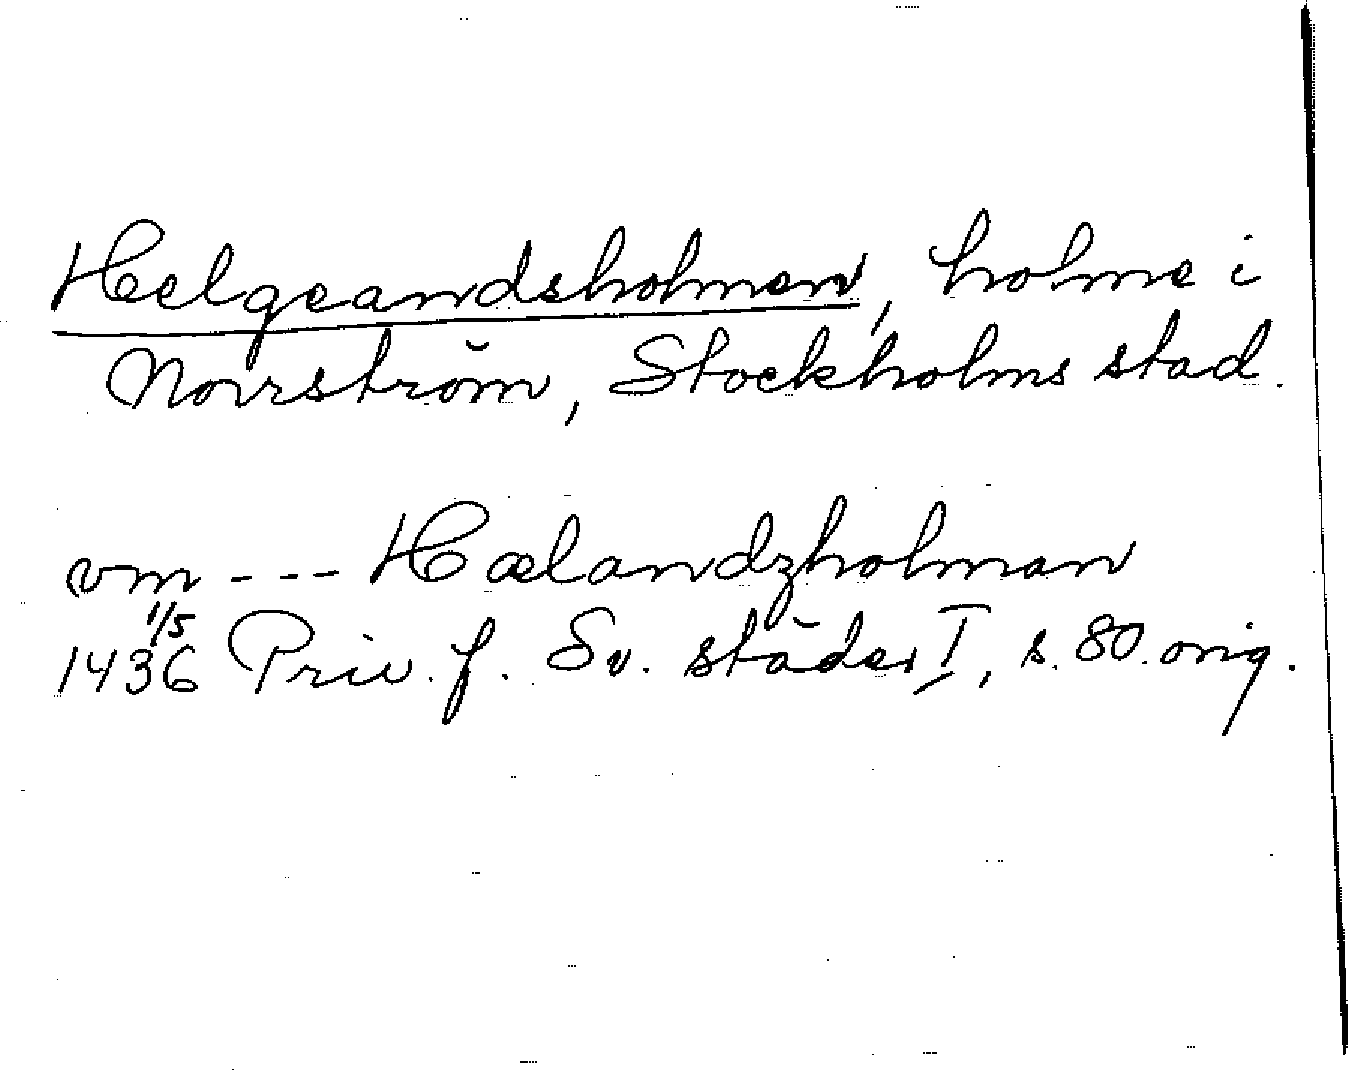 Helgeandsholmen, holme i
Norrström, Stockholms stad.
vm --- Hælandzholman
1/5
1436 Priv. f. Sv. städer I, s. 80. orig.